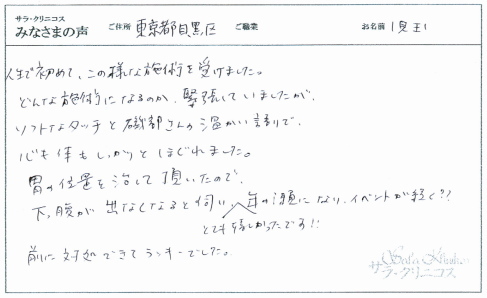 サラ・クリニコス
みなさまの声 ご住所 東京都目黒区 ご職業 お名前 児玉
人生で初めて、この様な施術を受けました。
どんな施術になるのか、緊張していましたが、
ソフトなタッチと磯部さんの温かい語りで、
心も体もしっかりとほぐれました。
胃の位置を治して頂いたので、
下っ腹が出なくなると伺い、年の瀬になり、イベントが続く?!
とても嬉しかったです!!
前に対処できてラッキーでした。
サラ・クリニコス